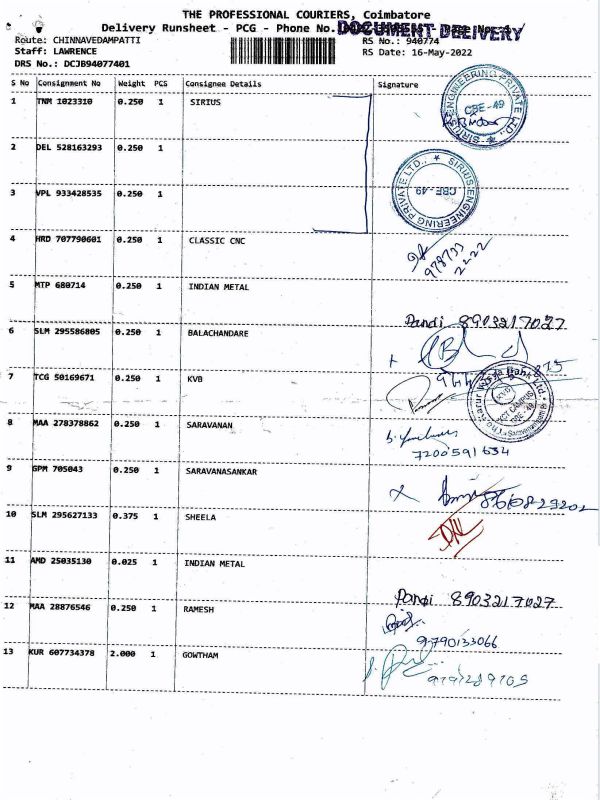 THE PROFESSIONAL COURIERS, Coimbatore
Delivery Runsheet - PCG - Phone No.
DOCUMENT DELIVERY
Route: CHINNAVEDAMPATTI
RS No.: 940774
Staff: LAWRENCE
RS Date: 16-May-2022
DRS No.: DCJB94077401
S No Consignment No Weight PCS Consignee Details Signature
1 TNM 1023310 0.250 1 SIRIUS
SIRIUS ENGINEERING PRIVATE LTD., CBE-49
2 DEL 528163293 0.250 1
3 VPL 933428535 0.250 1
SIRIUS ENGINEERING PRIVATE LTD., CBE-49
4 HRD 707790601 0.250 1 CLASSIC CNC
978733
2222
5 MTP 680714 0.250 1 INDIAN METAL
Pandi 8903217027
6 SLM 295586805 0.250 1 BALACHANDARE
7 TCG 50169671 0.250 1 KVB
The Karur Vysya Bank Ltd.
KCT CAMPUS
CBE-49
8 MAA 278378862 0.250 1 SARAVANAN
7200591634
9 GPM 705043 0.250 1 SARAVANASANKAR
10 SLM 295627133 0.375 1 SHEELA
11 AMD 25035130 0.025 1 INDIAN METAL
Pandi 8903217027
12 MAA 28876546 0.250 1 RAMESH
9790133066
13 KUR 607734378 2.000 1 GOWTHAM